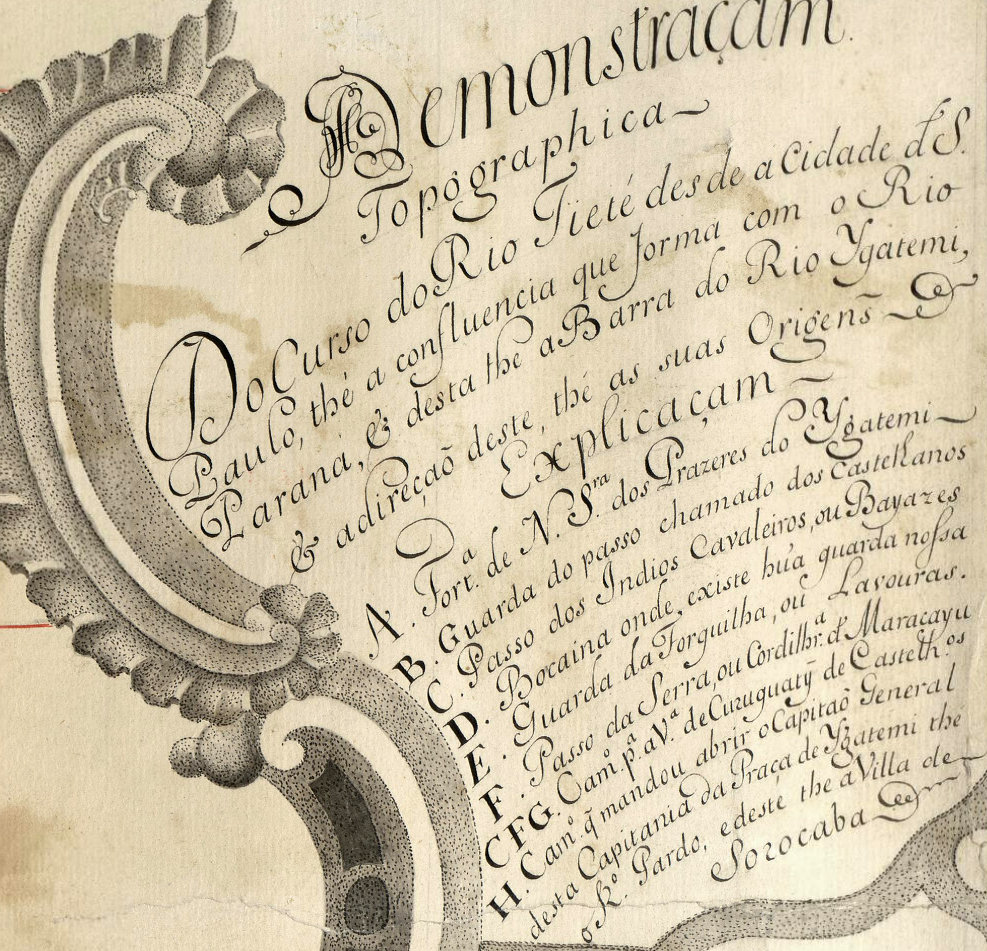 Demonstraçam.
Topographica
Do Curso do Rio Tieté desde a Cidade d' S.
Paulo, thé a confluencia que forma com o Rio
Parana, & desta the a Barra do Rio Ygatemi,
& a direcçaõ deste, thé as suas Origens̃
Explicaçam
A. Fort.ª de N. S.ra dos Prazeres do Ygatemi
B. Guarda do passo chamado dos Castelhanos
C. Passo dos Indios Cavaleiros, ou Bayazes
D. Bocaina onde existe hũa guarda nossa
E. Guarda da Forquilha, ou Lavouras.
F. Passo da Serra, ou Cordilhr.ª d' Maracayu
CFG. Cam.º p.ª a V.ª de Curuguatÿ de Castelh.os
H. Cam.º q̃ mandou abrir o Capitaõ General
desta Capitania da Praça de Ygatemi thé
o R.º Pardo, e deste the a Villa de
Sorocaba